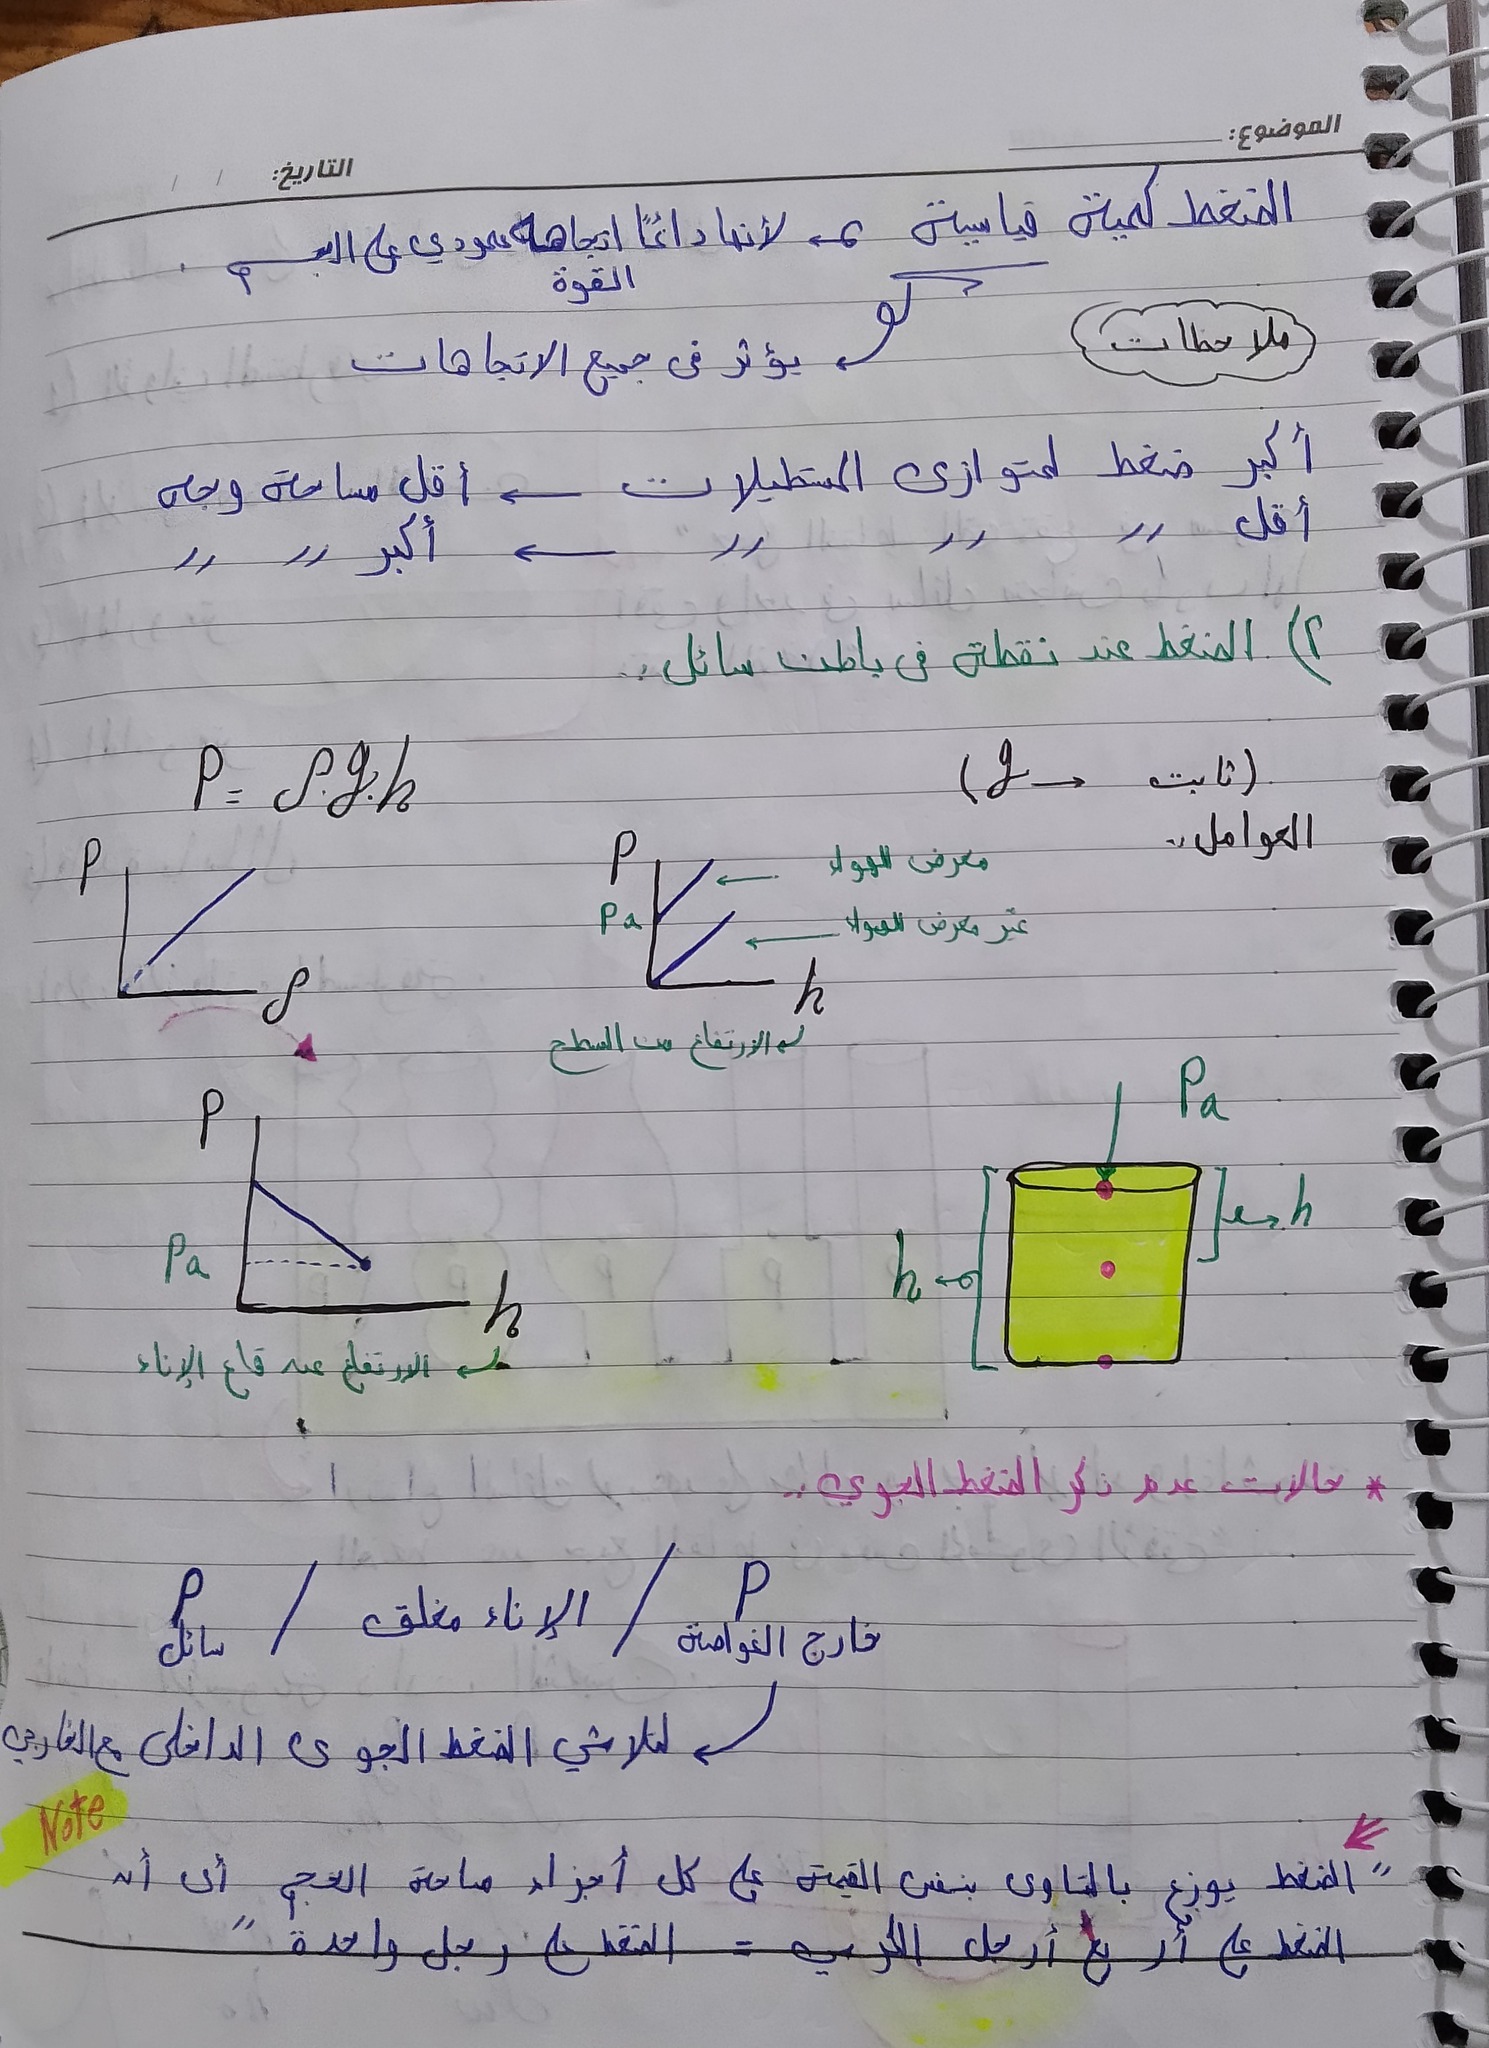 الموضوع:
التاريخ: / /
الضغط كمية قياسية ← لأنها دائمًا اتجاهها عمودي على الجسم .
القوة
ملاحظات
يؤثر فى جميع الاتجاهات
أكبر ضغط لمتوازى المستطيلات ← أقل مساحة وجه
أقل 〃 〃 〃 ← أكبر 〃 〃
٢) الضغط عند نقطة فى باطن سائل ..
(ثابت → g)
P = ρ.g.h
العوامل ..
P
معرض للهواء
Pa
غير معرض للهواء
h
الارتفاع من السطح
P
ρ
P
Pa
h
الارتفاع عن قاع الإناء
Pa
h
h
* حالات عدم ذكر الضغط الجوي ..
P خارج الغواصة / الإناء مغلق / P سائل
لتلاشي الضغط الجوى الداخلى مع الخارجي
Note
" الضغط يوزع بالتساوى بنفس القيمة على كل أجزاء مساحة الحجم أى أن
الضغط على أربع أرجل الكرسي = الضغط على رجل واحدة "